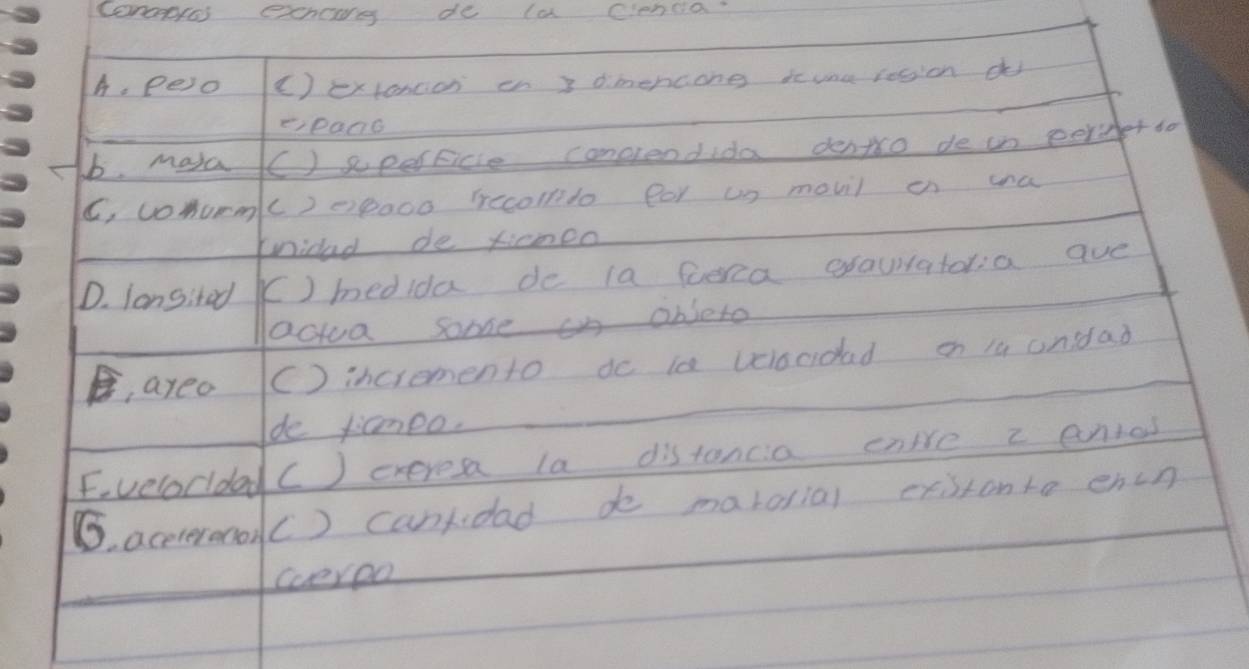 de la ciencia.
A. peso () extoncion en 3 dimencions de una region de
espacio
b. masa () superficie comprendida dentro de un perimetro
C, volurm () espaco recorrido por un movil en una
unidad de tiempo
D. longitod () medida de la fuerza gravitatoria que
actua sobre un objeto
E, areo () incremento de la velocidad en la unidad
de tiempo.
F. velocidad () expresa la distancia entre 2 puntos
G. aceleracion () cantidad de matorial existonte en un
cuerpo